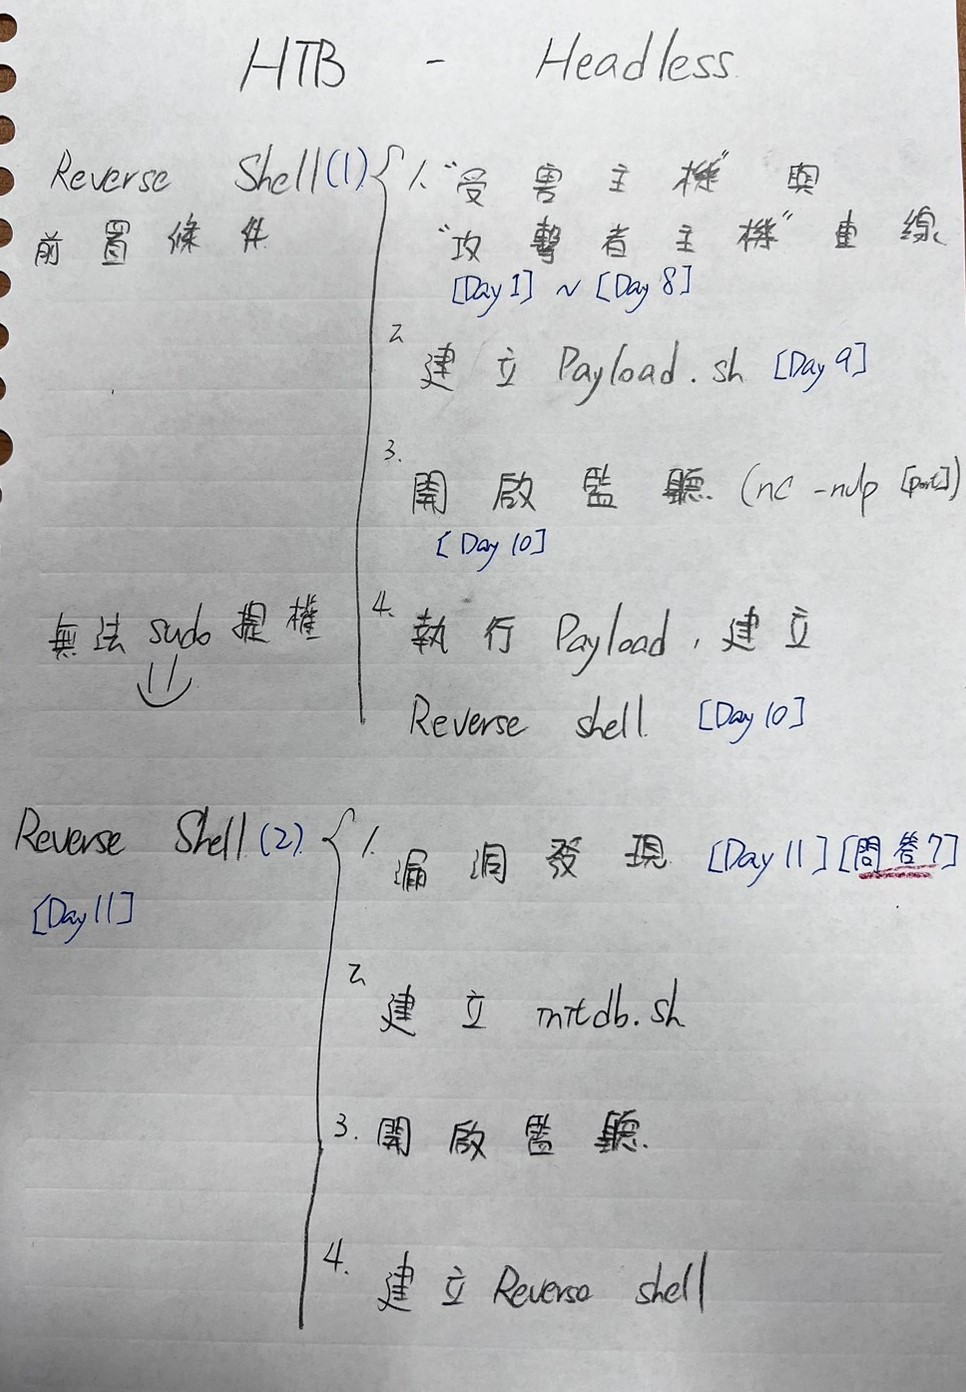 HTB - Headless
Reverse Shell(1)
前置條件
1. "受害主機"與
"攻擊者主機"連線
[Day 1] ~ [Day 8]
2. 建立 Payload.sh [Day 9]
3. 開啟監聽. (nc -nvlp [port])
[Day 10]
4. 執行 Payload, 建立
Reverse shell. [Day 10]
無法 sudo 提權
Reverse Shell(2)
[Day 11]
1. 漏洞發現 [Day 11] [問卷7]
2. 建立 initdb.sh
3. 開啟監聽.
4. 建立 Reverse shell